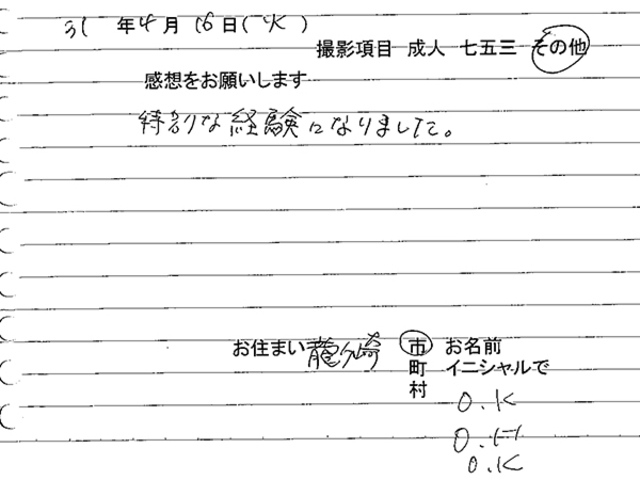 31年4月16日(火)
撮影項目 成人 七五三 その他
感想をお願いします
特別な経験になりました。
お住まい 龍ヶ崎 市 お名前
町 イニシャルで
村
O.K
O.H
O.K